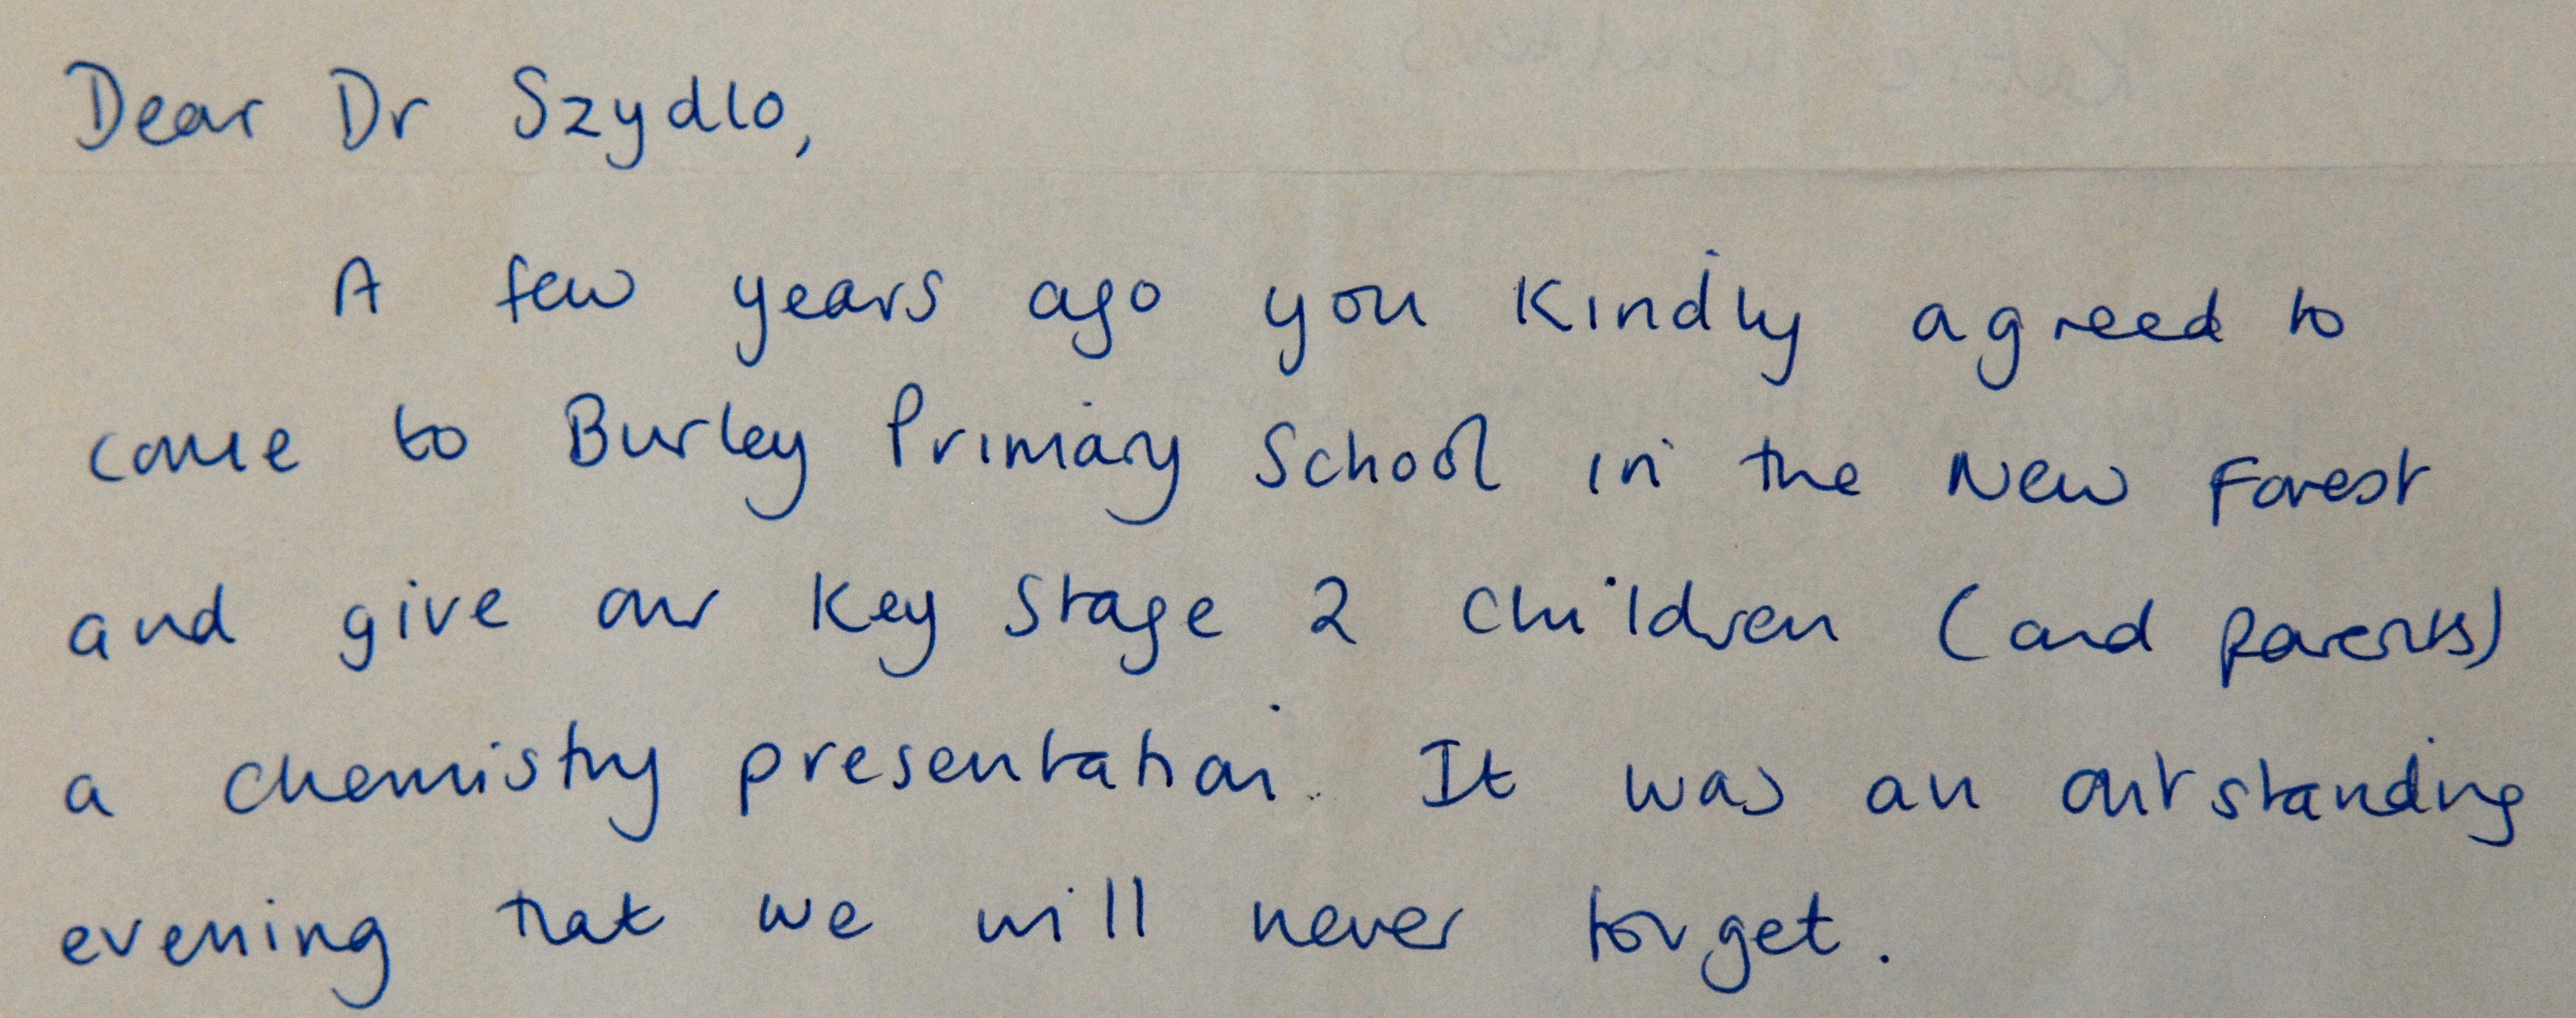 Dear Dr Szydlo,
A few years ago you kindly agreed to
come to Burley Primary School in the New Forest
and give our Key Stage 2 children (and parents)
a chemistry presentation. It was an outstanding
evening that we will never forget.